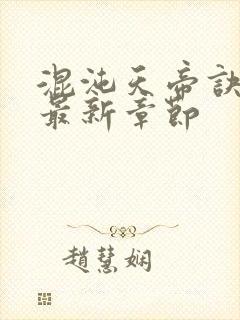 混沌天帝訣
最新章節
趙慧嫻